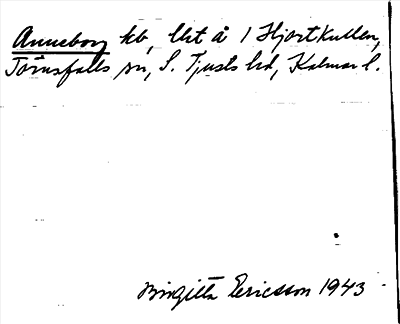 Anneborg hb, lht å 1 Hjortkullen,
Törnsfalls sn, S. Tjusts hd, Kalmar l.
Birgitta Ericsson 1943